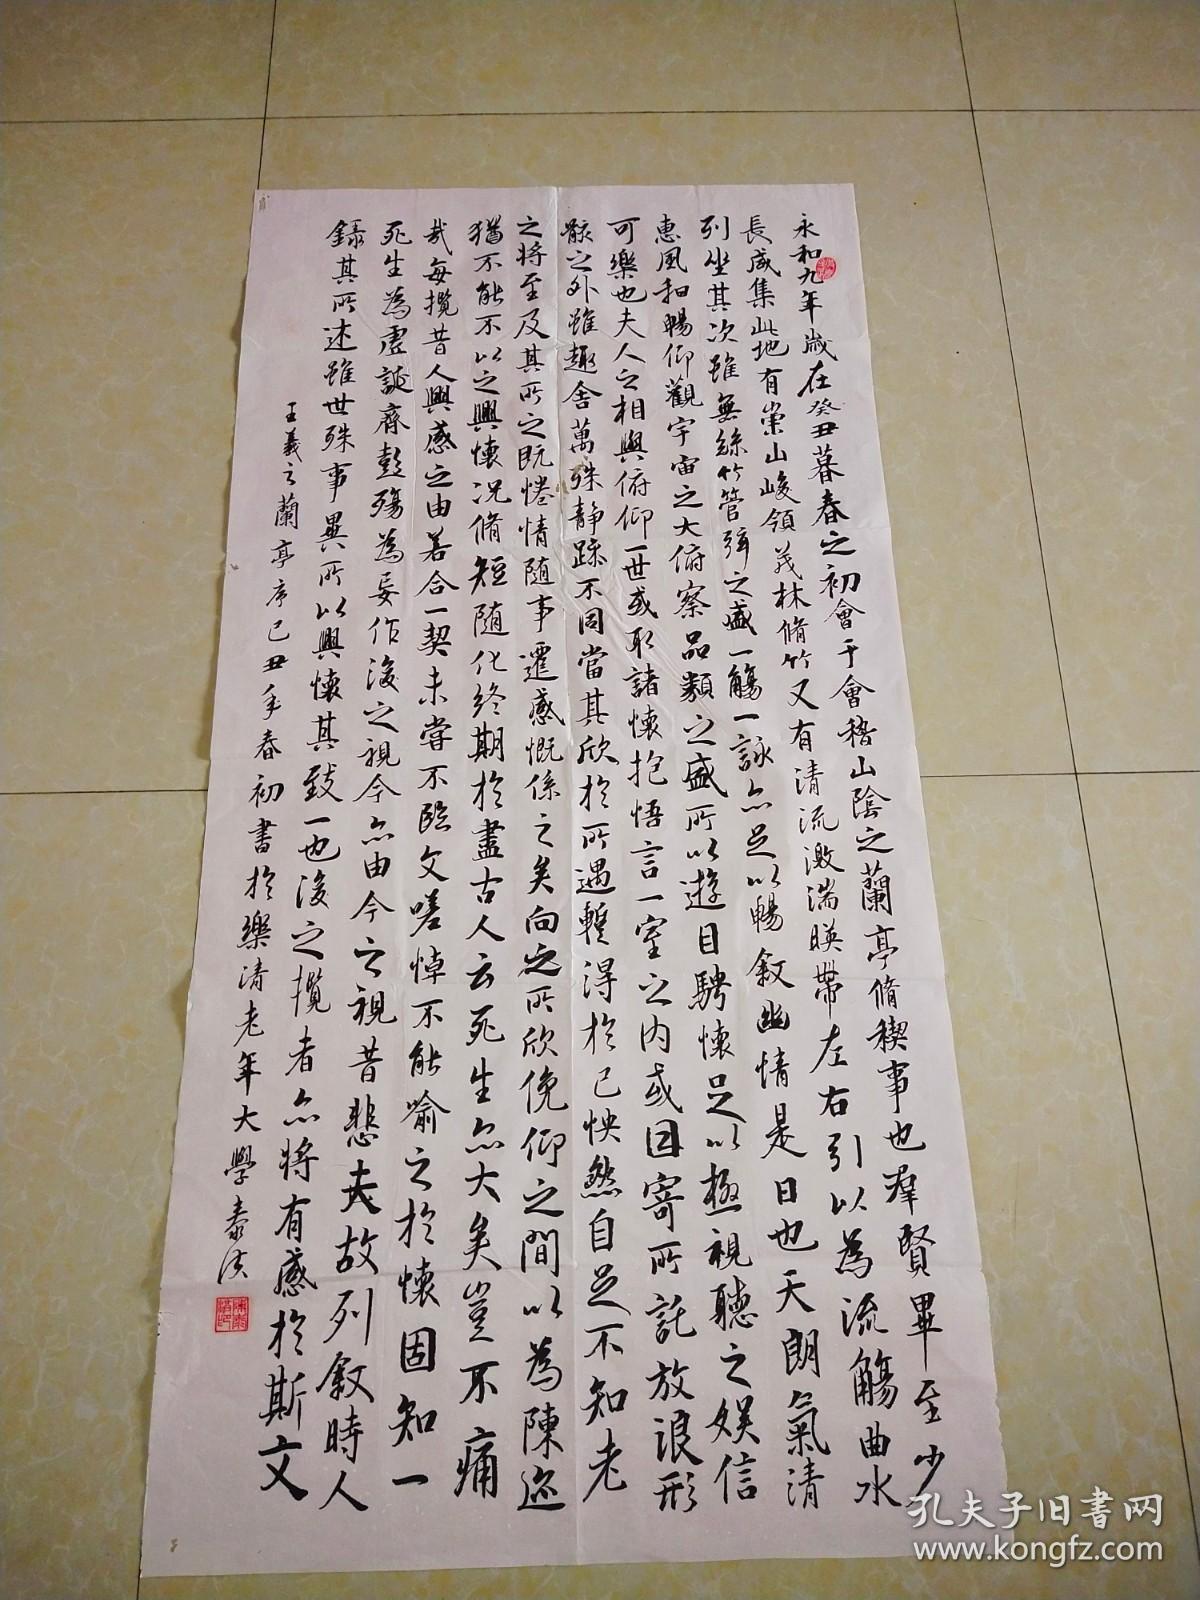 永和九年歲在癸丑暮春之初會于會稽山陰之蘭亭脩稧事也羣賢畢至少
長咸集此地有崇山峻領茂林脩竹又有清流激湍暎帶左右引以為流觴曲水
列坐其次雖無絲竹管弦之盛一觴一詠亦足以暢敘幽情是日也天朗氣清
惠風和暢仰觀宇宙之大俯察品類之盛所以遊目騁懷足以極視聽之娛信
可樂也夫人之相與俯仰一世或取諸懷抱悟言一室之内或因寄所託放浪形
骸之外雖趣舍萬殊静躁不同當其欣於所遇暫得於己怏然自足不知老
之將至及其所之既惓情随事遷感慨係之矣向之所欣俛仰之間以為陳迹
猶不能不以之興懷况脩短随化終期於盡古人云死生亦大矣豈不痛
哉每攬昔人興感之由若合一契未嘗不臨文嗟悼不能喻之於懷固知一
死生為虚誕齊彭殤為妄作後之視今亦由今之視昔悲夫故列敘時人
錄其所述雖世殊事異所以興懷其致一也後之攬者亦將有感於斯文
王羲之蘭亭序己丑年春初書於樂清老年大學泰洪
孔夫子旧书网
www.kongfz.com